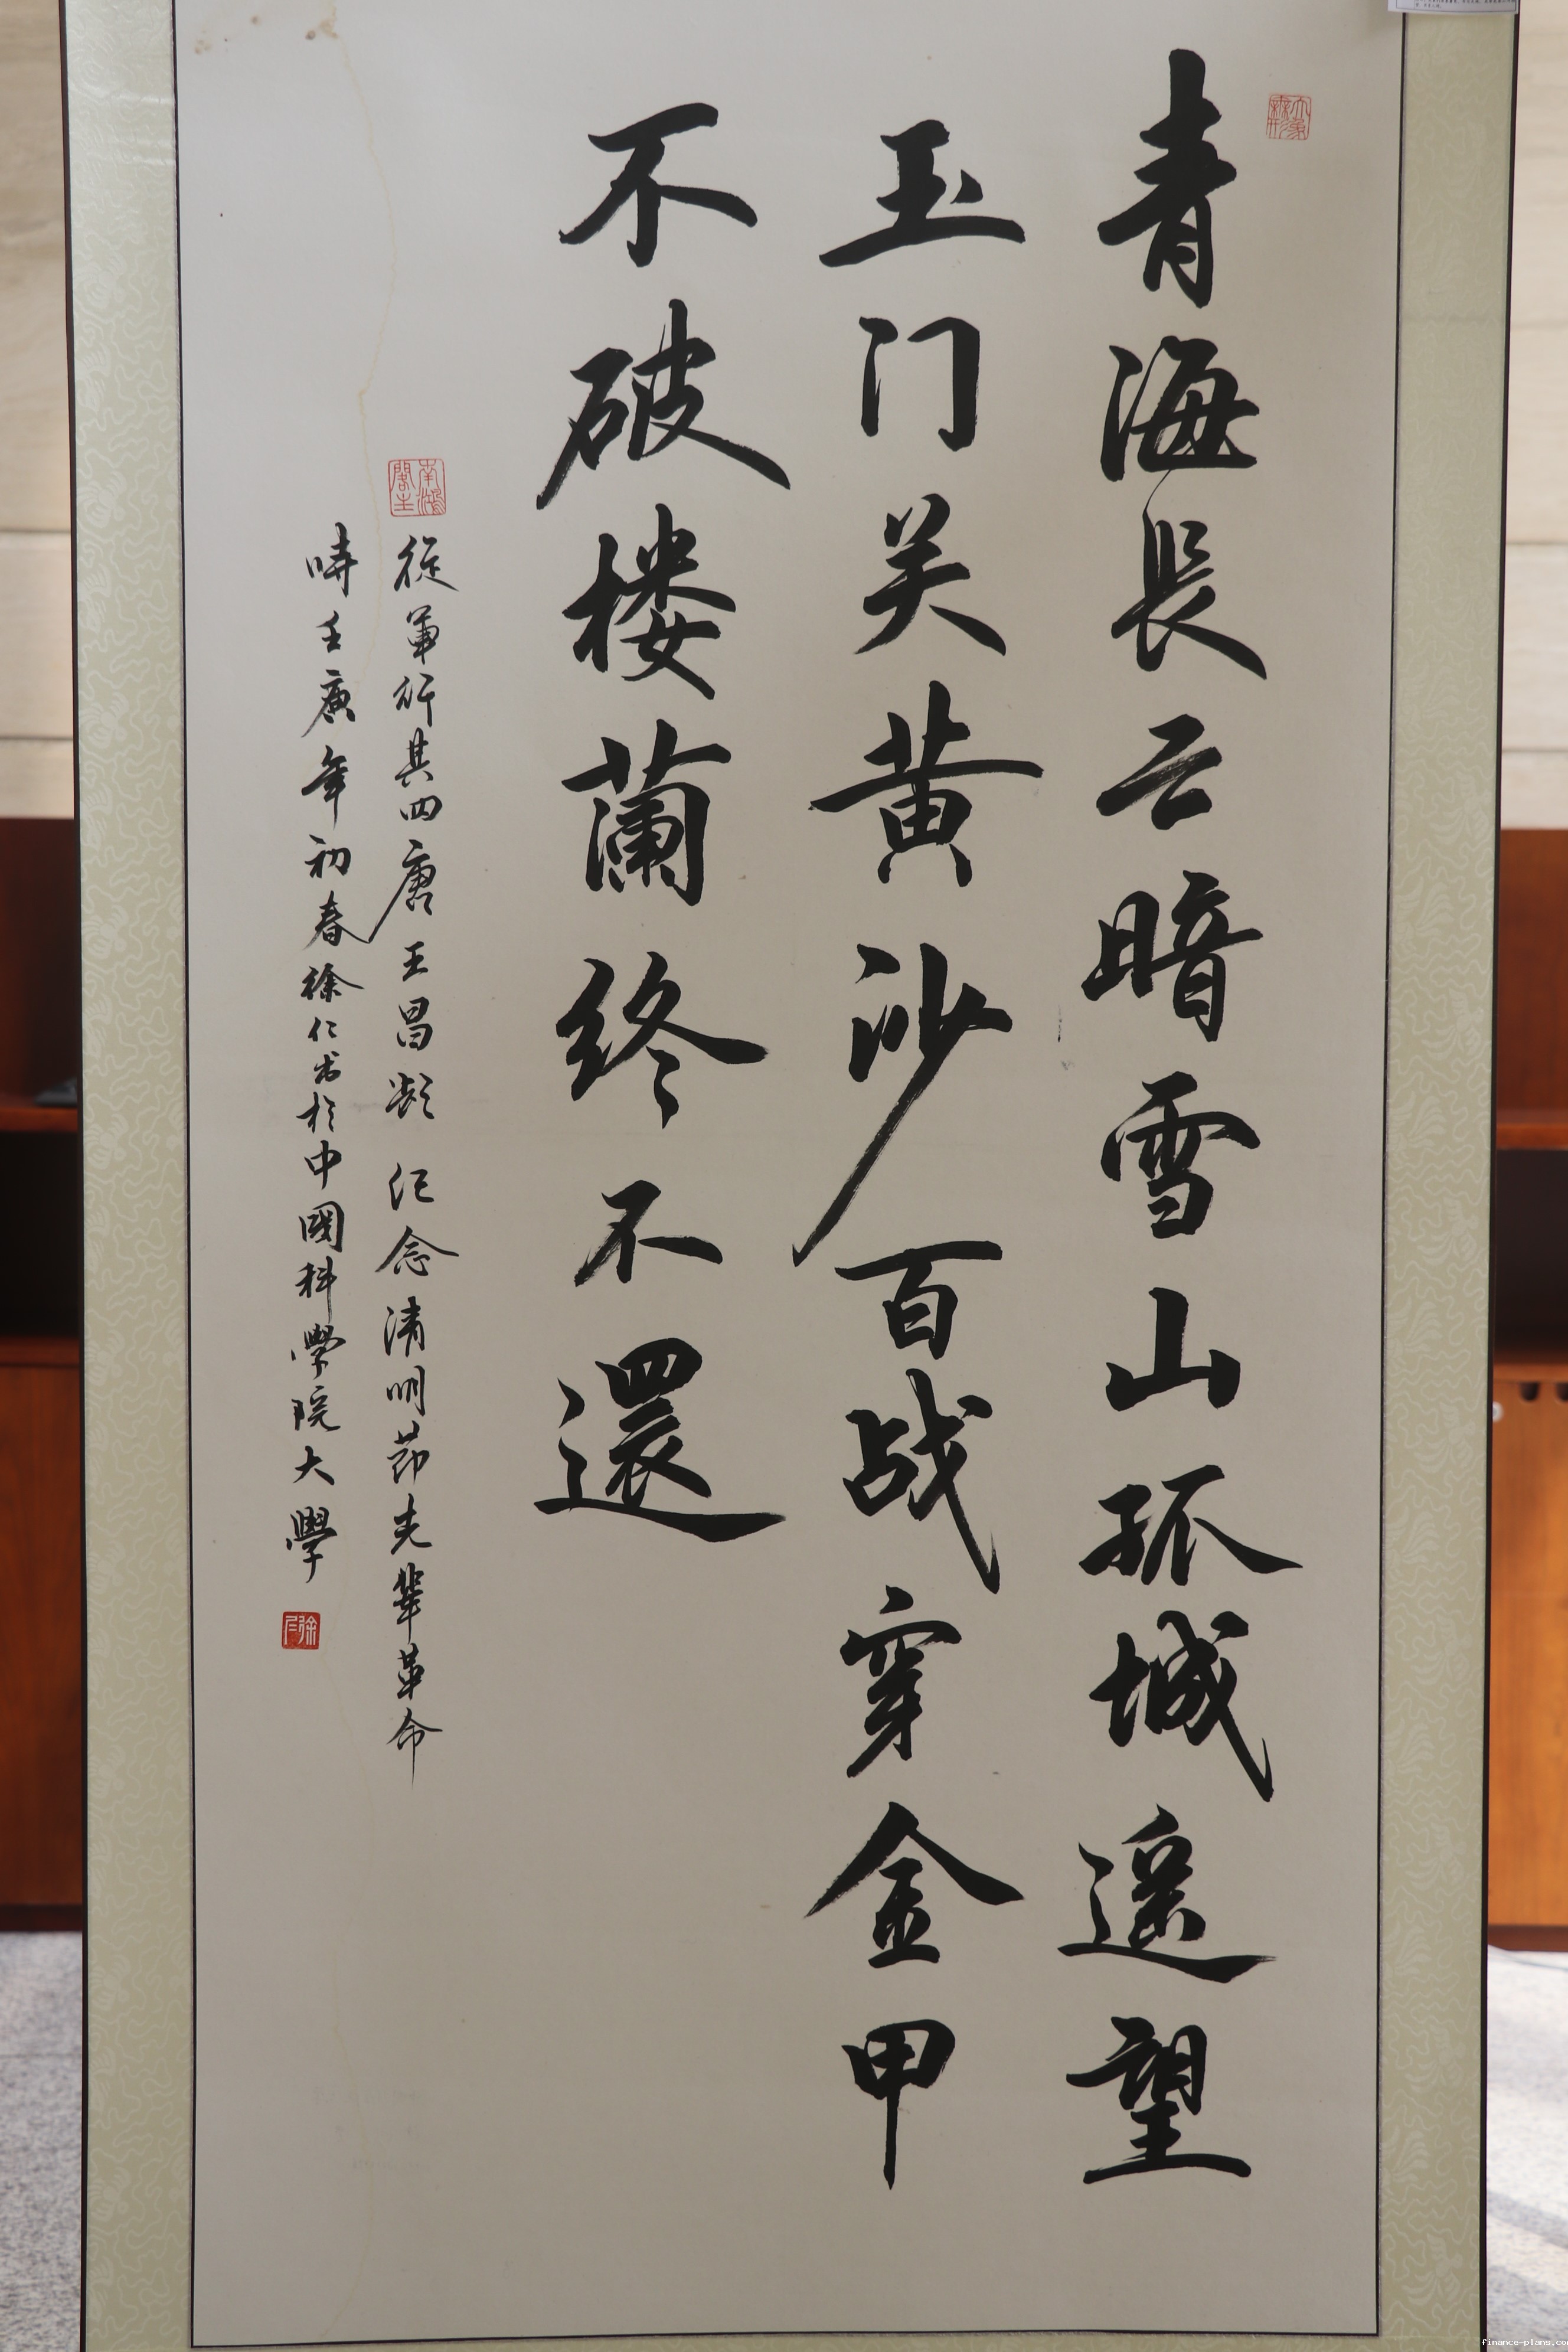 青海長云暗雪山孤城遥望
玉门关黄沙百战穿金甲
不破楼蘭终不還
從軍行其四唐王昌龄 纪念清明节先辈革命
時壬寅年初春徐仁书於中國科學院大學
大象無形
徐仁
finance-plans.co